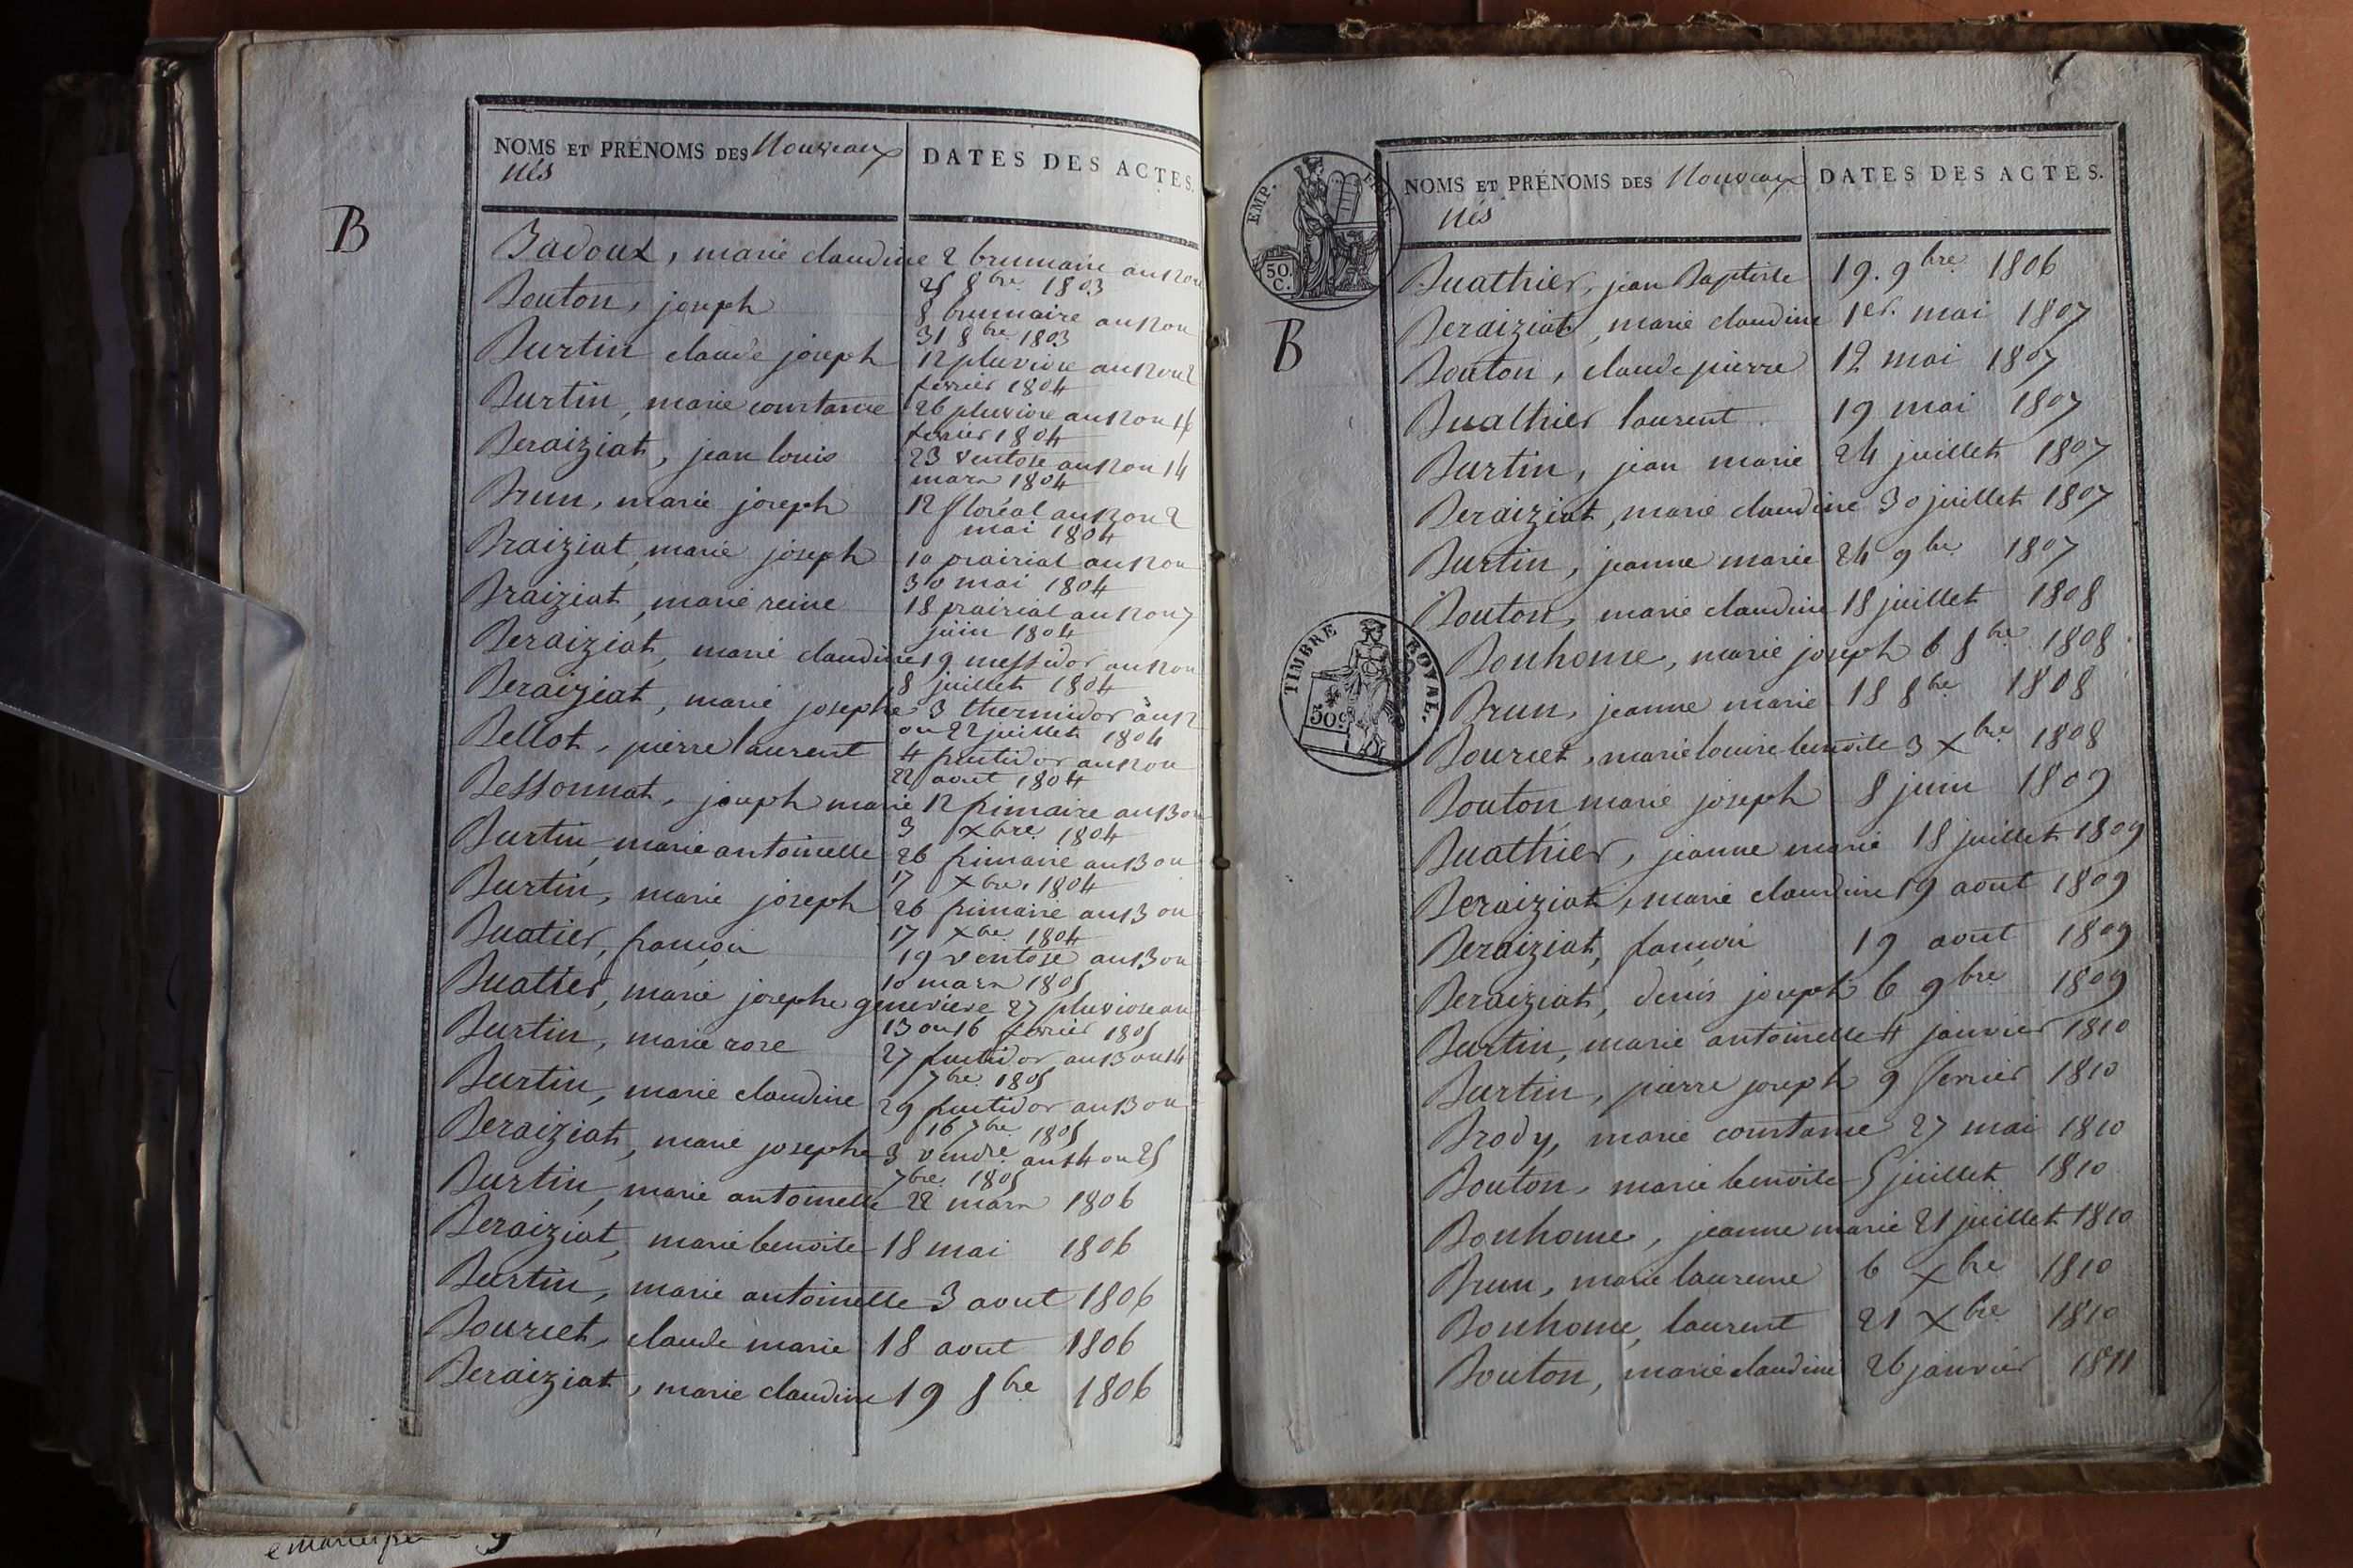 NOMS ET PRÉNOMS DES Nouveaux
nés
DATES DES ACTES.
B
Badoux, marie claudine 2 brumaire an 12 ou
25 8bre 1803
Bouton, joseph 8 brumaire an 12 ou
31 8bre 1803
Burtin claude joseph 12 pluviose an 12 ou 2
fevrier 1804
Burtin, marie constance 26 pluviose an 12 ou 16
fevrier 1804
Beraiziat, jean louis 23 ventose an 12 ou 14
mars 1804
Brun, marie joseph 12 floréal an 12 ou 2
mai 1804
Braiziat, marie joseph 10 prairial an 12 ou
30 mai 1804
Braiziat, marie reine 18 prairial an 12 ou 7
juin 1804
Beraiziat, marie claudine 19 messidor an 12 ou
8 juillet 1804
Beraiziat, marie josephe 3 thermidor an 12
ou 22 juillet 1804
Bellot, pierre laurent 4 fructidor an 12 ou
22 aout 1804
Bessonnat, joseph marie 12 frimaire an 13 ou
3 Xbre 1804
Burtin, marie antoinette 26 frimaire an 13 ou
17 Xbre 1804
Burtin, marie joseph 26 frimaire an 13 ou
17 Xbre 1804
Buatier, françois 19 ventose an 13 ou
10 mars 1805
Buatier, marie josephe genevieve 27 pluviose an
13 ou 16 fevrier 1805
Burtin, marie rose 27 fructidor an 13 ou 14
7bre 1805
Burtin, marie claudine 29 fructidor an 13 ou
16 7bre 1805
Beraiziat, marie josephe 3 vendre an 14 ou 25
7bre 1805
Burtin, marie antoinette 22 mars 1806
Beraiziat, marie benoite 18 mai 1806
Burtin, marie antoinette 3 aout 1806
Bourcet, claude marie 18 aout 1806
Beraiziat, marie claudine 19 8bre 1806
NOMS ET PRÉNOMS DES Nouveaux
nés
DATES DES ACTES.
EMP.
50.
C.
B
TIMBRE ROYAL.
50c
Buathier, jean Baptiste 19. 9bre 1806
Beraiziat, marie claudine 1er. mai 1807
Bouton, claude pierre 12 mai 1807
Buathier laurent 19 mai 1807
Burtin, jean marie 24 juillet 1807
Beraiziat, marie claudine 30 juillet 1807
Burtin, jeanne marie 24 9bre 1807
Bouton, marie claudine 18 juillet 1808
Bonhome, marie joseph 6 8bre 1808
Brun, jeanne marie 18 8bre 1808
Bourcet, marie louise benoite 3 Xbre 1808
Bouton marie joseph 8 juin 1809
Buathier, jeanne marie 18 juillet 1809
Beraiziat, marie claudine 19 aout 1809
Beraiziat, françois 19 aout 1809
Beraiziat, denis joseph 6 9bre 1809
Burtin, marie antoinette 4 janvier 1810
Burtin, pierre joseph 9 fevrier 1810
Brody, marie constance 27 mai 1810
Bouton, marie benoite 5 juillet 1810
Bonhome, jeanne marie 21 juillet 1810
Brun, marie laurence 6 Xbre 1810
Bonhome, laurent 21 Xbre 1810
Bouton, marie claudine 26 janvier 1811